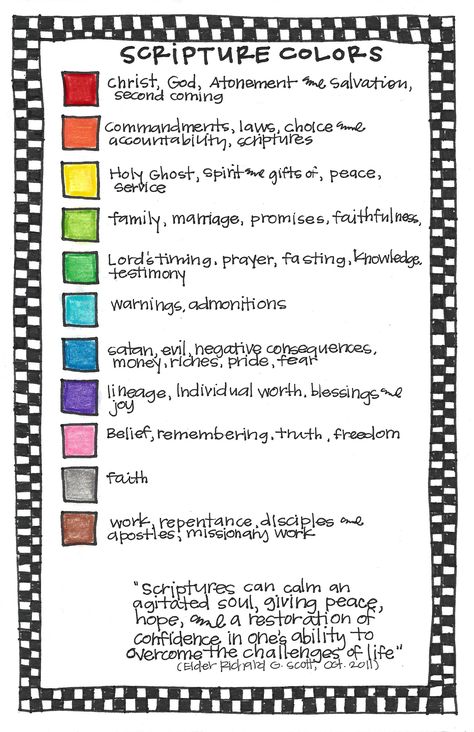 SCRIPTURE COLORS
Christ, God, Atonement and Salvation,
second coming
Commandments, laws, choice and
accountability, scriptures
Holy Ghost, Spirit and gifts of, peace,
service
family, marriage, promises, faithfulness,
Lord's timing, prayer, fasting, knowledge,
testimony
warnings, admonitions
satan, evil, negative consequences,
money, riches, pride, fear
lineage, individual worth, blessings and
joy
Belief, remembering, truth, freedom
faith
work, repentance, disciples and
apostles, missionary work
"Scriptures can calm an
agitated soul, giving peace,
hope, and a restoration of
confidence in one's ability to
overcome the challenges of life"
(Elder Richard G. Scott, Oct. 2011)